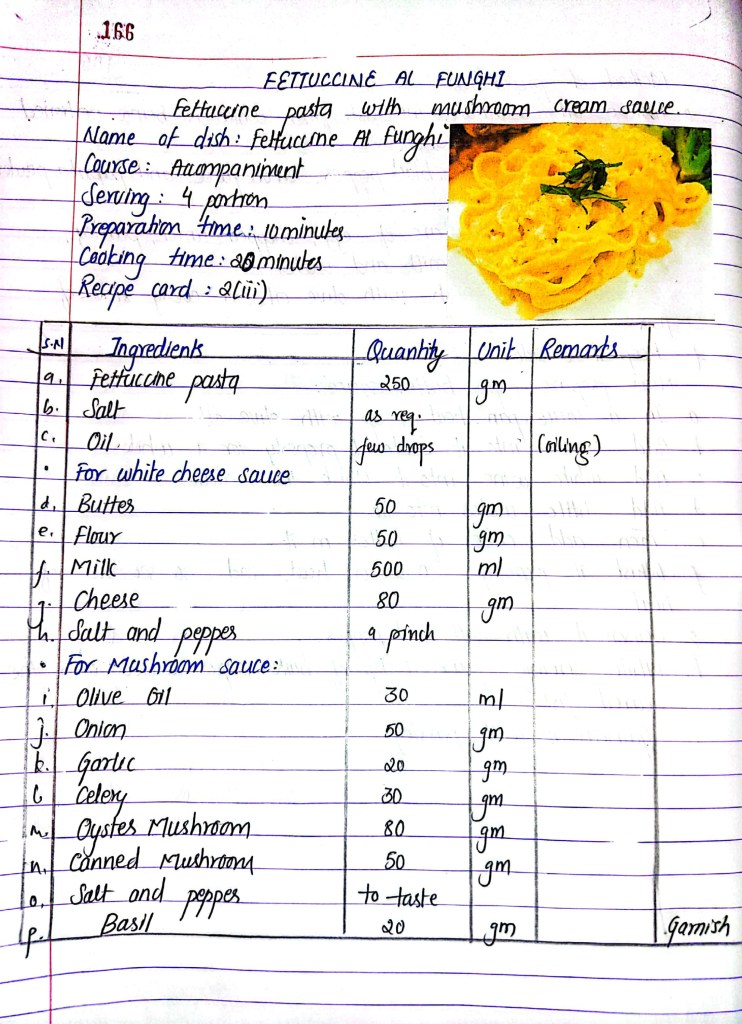 .166
FETTUCCINE AL FUNGHI
Fettuccine pasta with mushroom cream sauce.
Name of dish: Fettuccine Al Funghi
Course: Accompaniment
Serving: 4 portion
Preparation time: 10 minutes
Cooking time: 20 minutes
Recipe card: 2(iii)
S.N Ingredients Quantity Unit Remarks
a. Fettuccine pasta 250 gm
b. Salt as req.
c. Oil few drops (oiling)
• For white cheese sauce
d. Butter 50 gm
e. Flour 50 gm
f. Milk 500 ml
g. Cheese 80 gm
h. Salt and pepper a pinch
• For Mushroom sauce:
i. Olive Oil 30 ml
j. Onion 50 gm
k. Garlic 20 gm
l. Celery 30 gm
m. Oyster Mushroom 80 gm
n. Canned Mushroom 50 gm
o. Salt and pepper to taste
p. Basil 20 gm Garnish